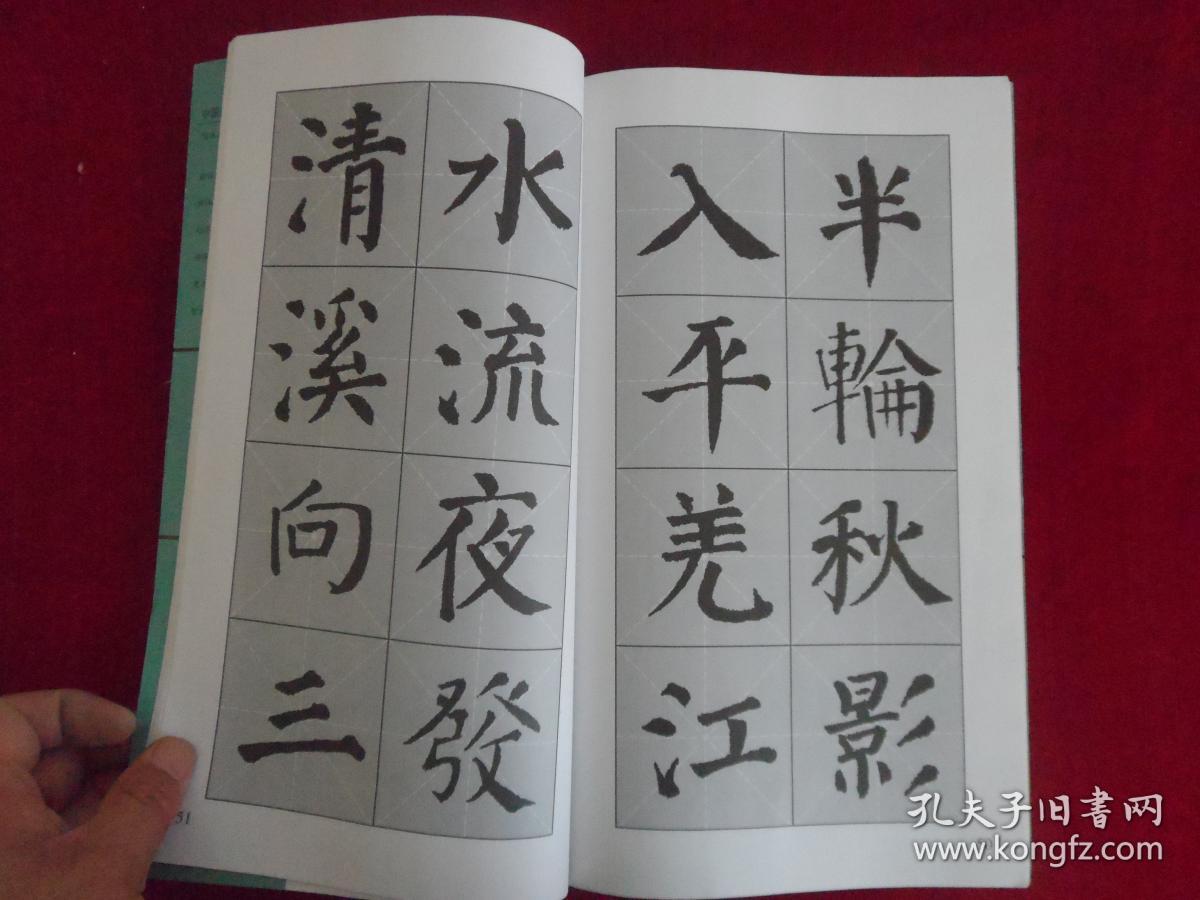 半輪秋影
入平羌江
水流夜發
清溪向三
51
孔夫子旧書网
www.kongfz.com